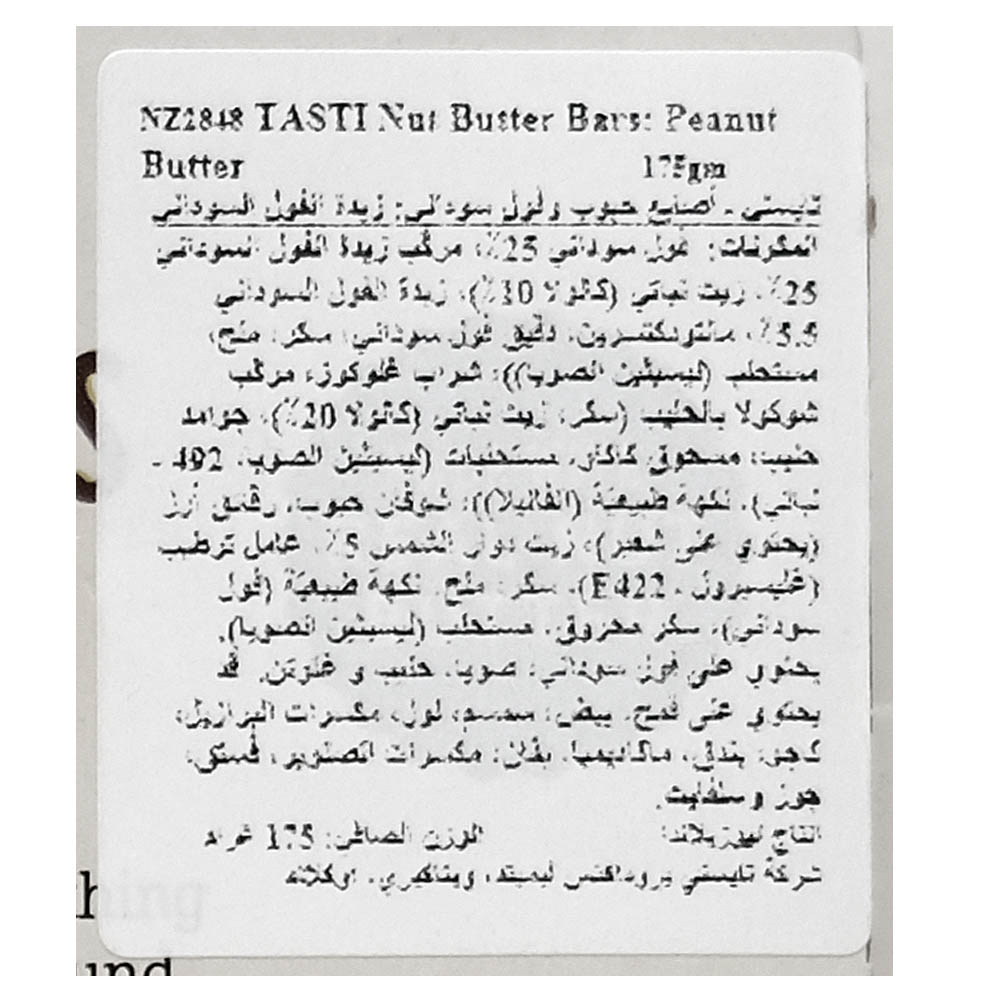 NZ2848 TASTI Nut Butter Bars: Peanut
Butter 175gm
تايستي - أصابع حبوب ولوز سوداني: زبدة الفول السوداني
المكونات: فول سوداني 25٪، مركب زبدة الفول السوداني
25٪، زيت نباتي (كانولا 10٪)، زبدة الفول السوداني
5.5٪، مالتودكسترين، دقيق فول سوداني، سكر، ملح،
مستحلب (ليسيثين الصويا))، شراب غلوكوز، مركب
شوكولا بالحليب (سكر، زيت نباتي (كانولا 20٪)، جوامد
حليب، مسحوق كاكاو، مستحلبات (ليسيثين الصويا، 492 -
نباتي)، نكهة طبيعية (الفانيلا))، شوفان حبوب، رقائق أرز
(يحتوي على شعير)، زيت دوار الشمس 5٪، عامل ترطيب
(غليسيرول - E422)، سكر، ملح، نكهة طبيعية (فول
سوداني)، سكر محروق، مستحلب (ليسيثين الصويا).
يحتوي على فول سوداني، صويا، حليب و غلوتن. قد
يحتوي على قمح، بيض، سمسم، لوز، مكسرات البرازيل،
كاجو، بندق، ماكاديميا، بقان، مكسرات الصنوبر، فستق،
جوز وسلفايت.
انتاج نيوزيلاندا الوزن الصافي: 175 غرام
شركة تايستي برودكتس ليميتد، ويتاكيري، اوكلاند
hing
und